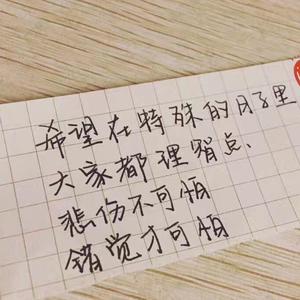 希望在特殊的日子里
大家都理智点、
悲伤不可怕
错觉才可怕